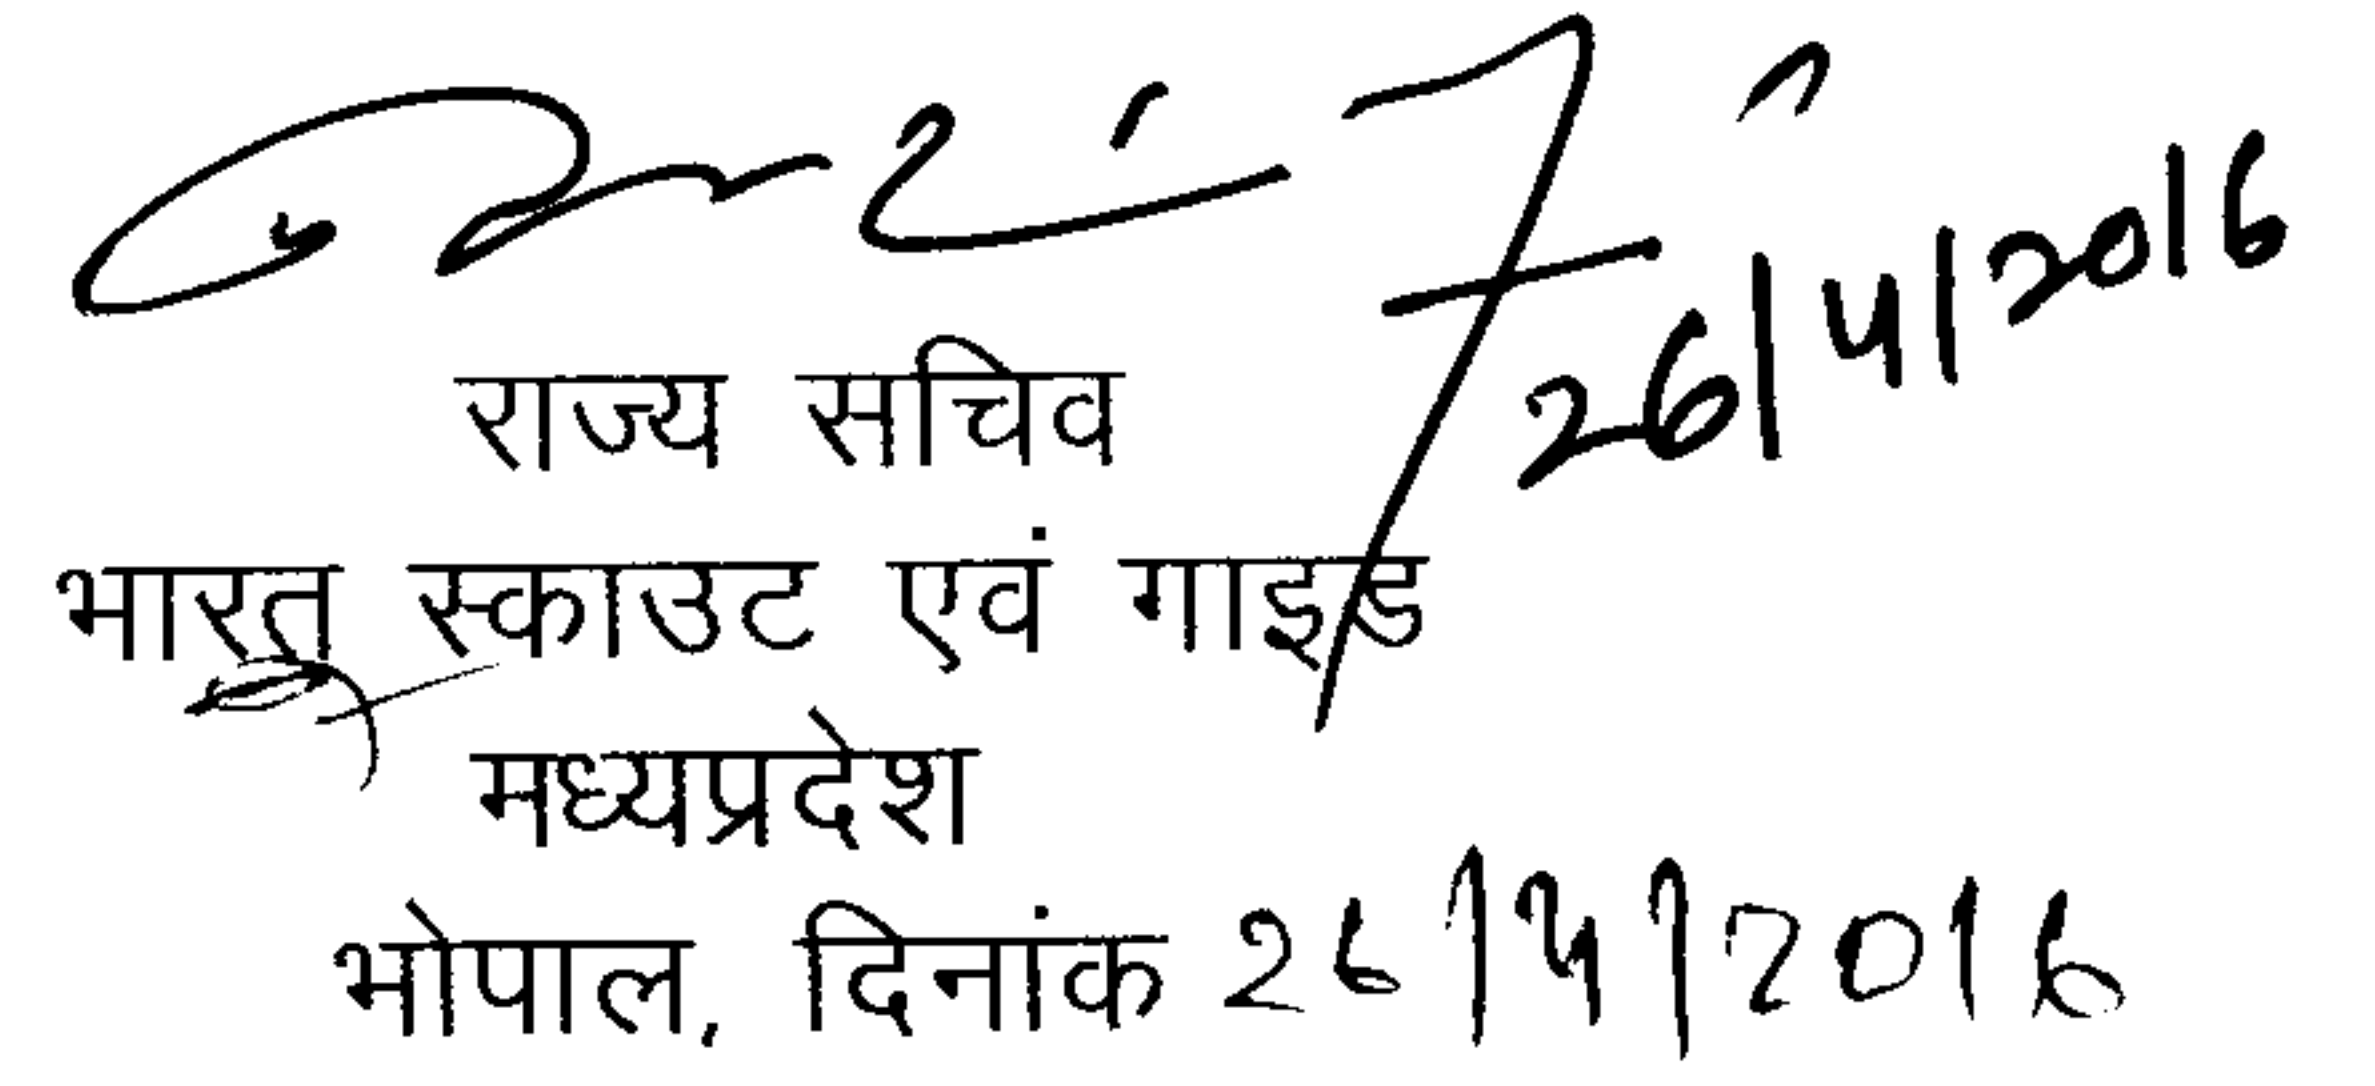 26/4/2016
राज्य सचिव
भारत स्काउट एवं गाइड
मध्यप्रदेश
भोपाल, दिनांक 26/4/2016